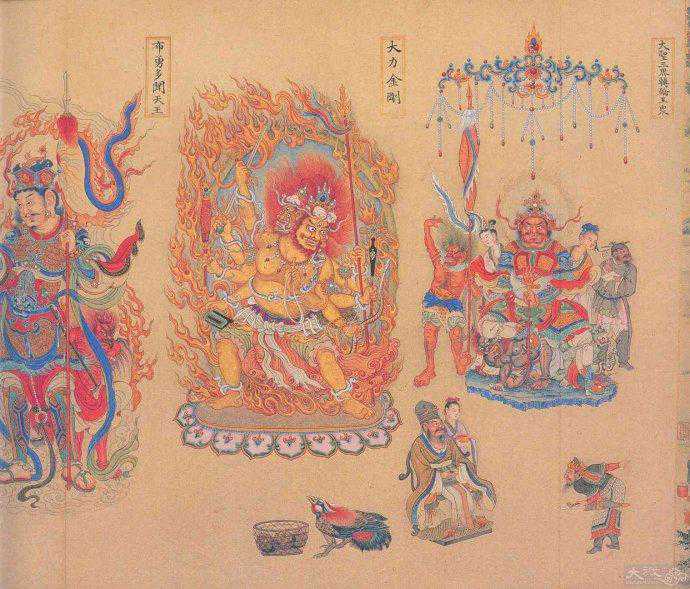 大聖三界轉輪王衆
大力金剛
布勇多聞天王